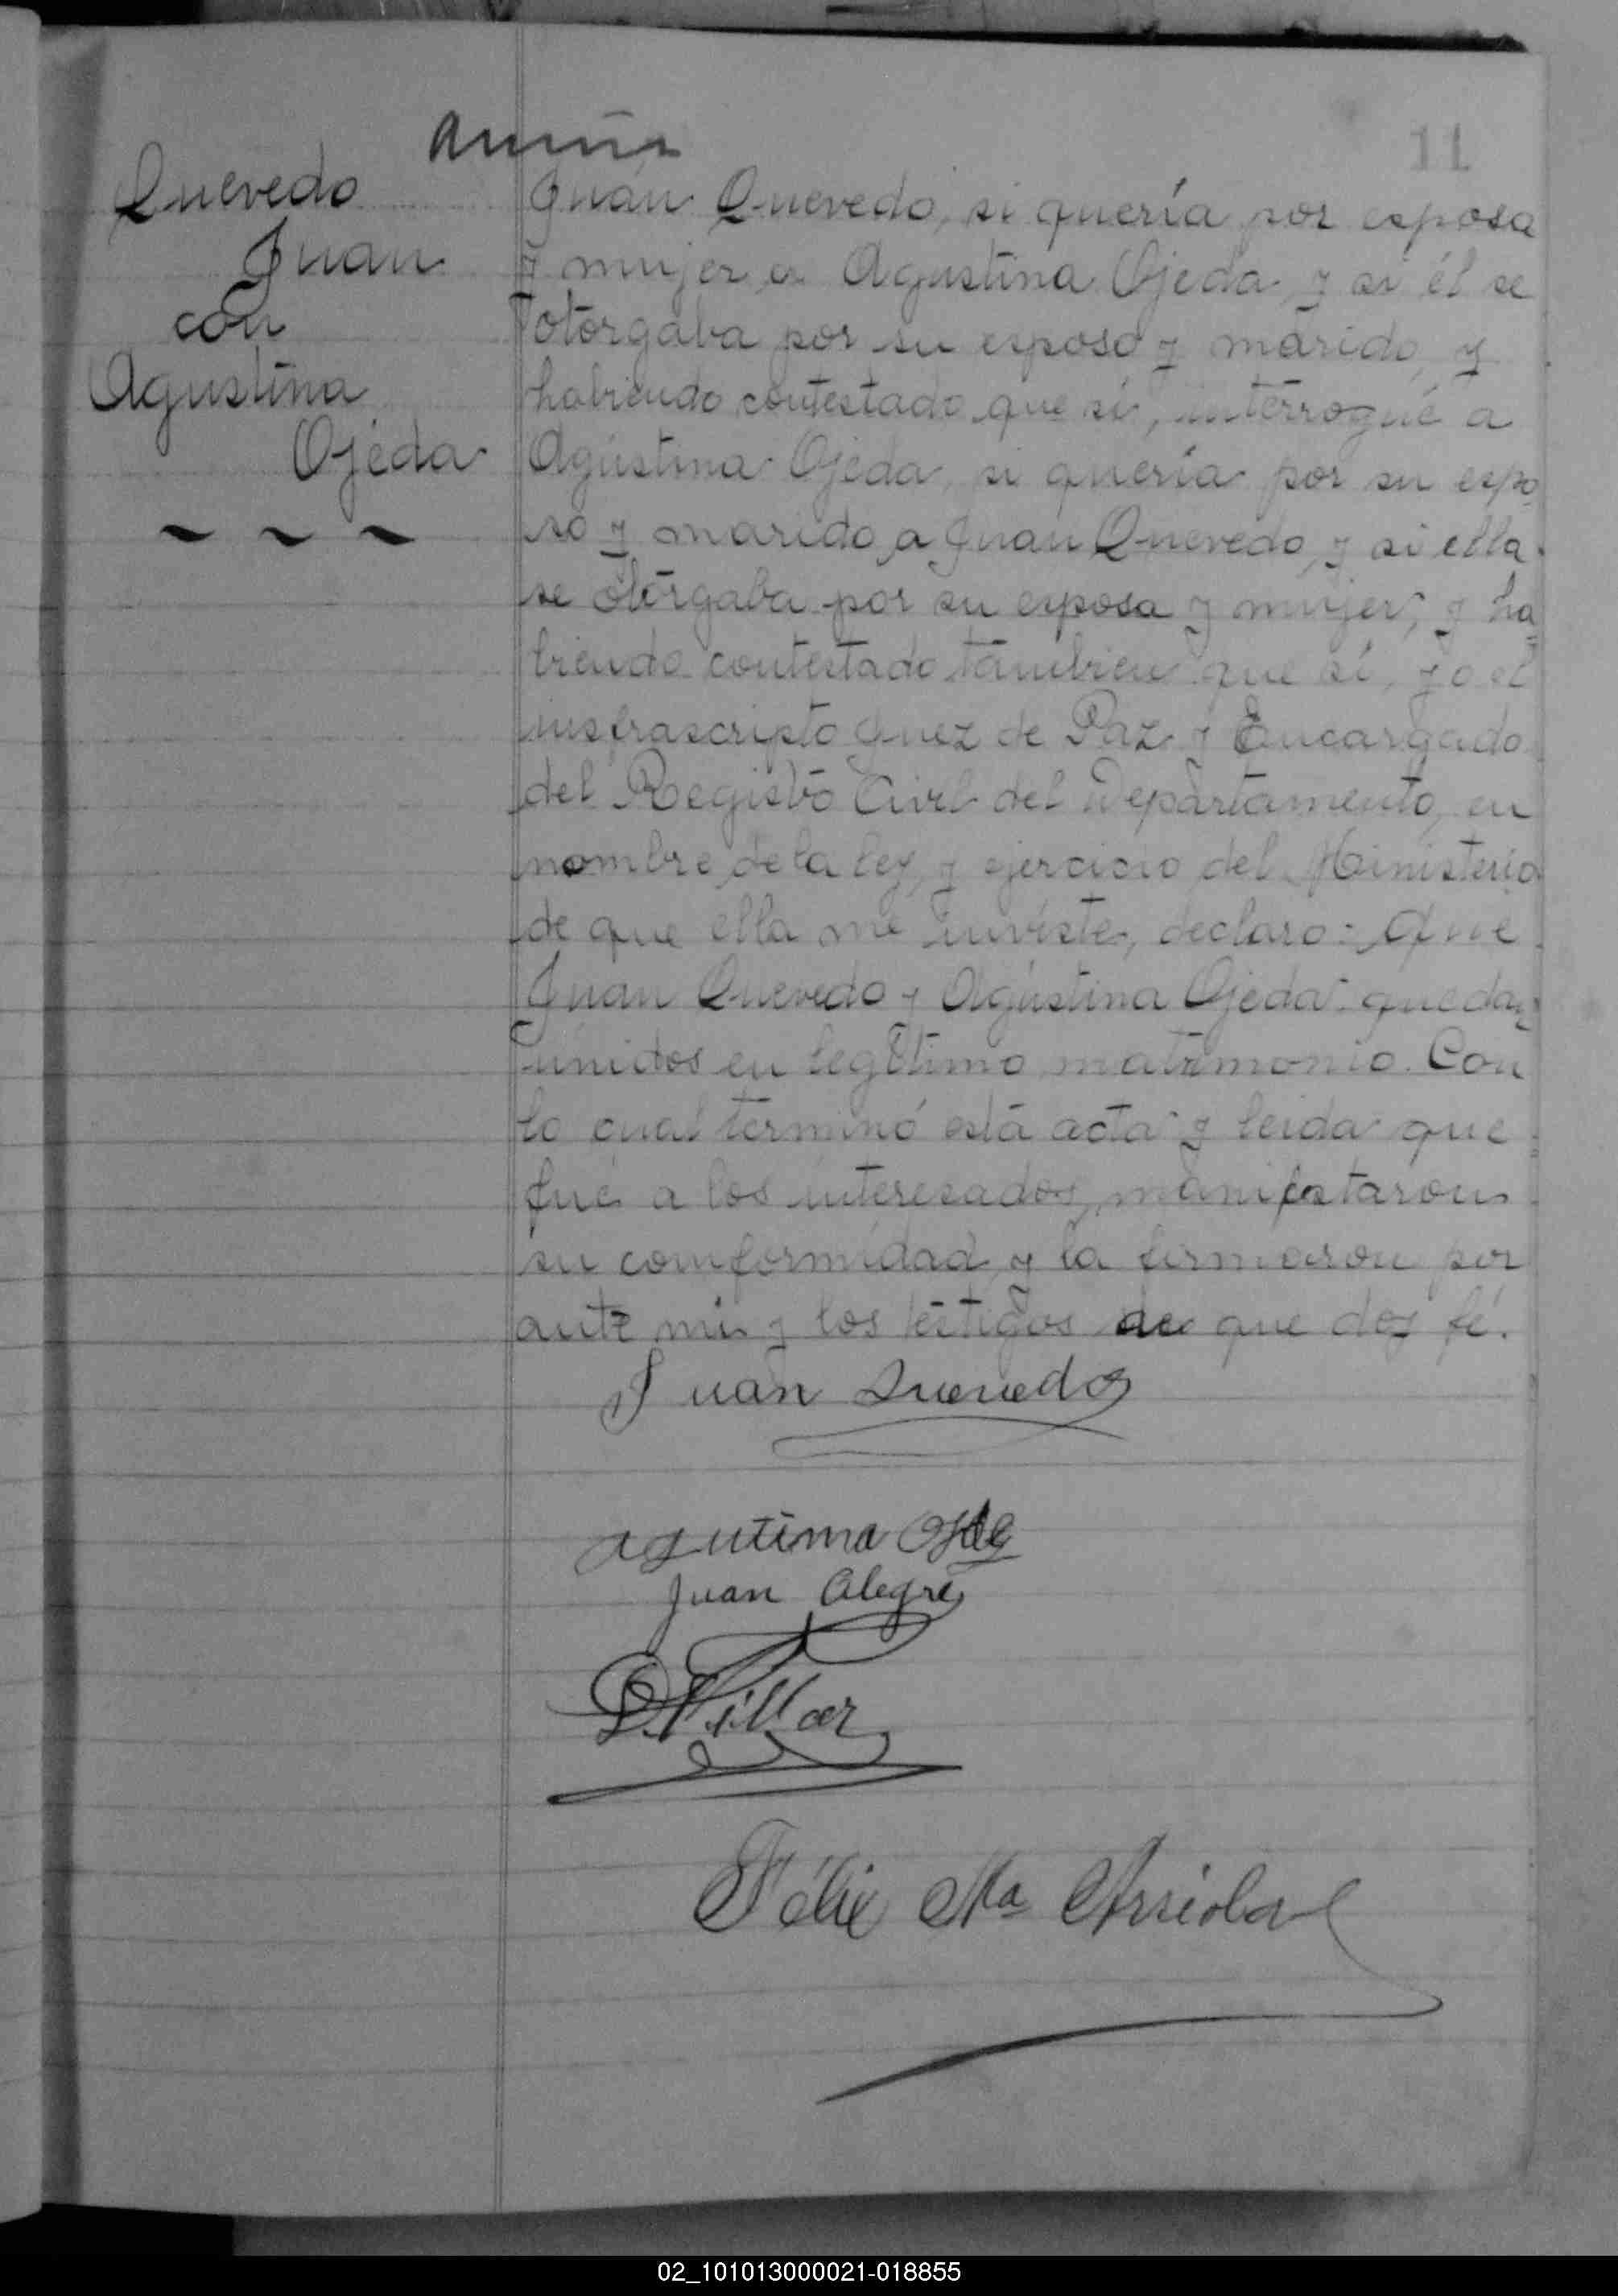 11
Quevedo
Juan
con
Agustina
Ojeda
Juan Quevedo, si quería por esposa
y mujer a Agustina Ojeda, y si él se
otorgaba por su esposo y marido, y
habiendo contestado que sí, interrogué a
Agustina Ojeda, si quería por su espo
so y marido a Juan Quevedo, y si ella
se otorgaba por su esposa y mujer, y ha
biendo contestado tambien que sí, yo el
insfrascripto Juez de Paz y Encargado
del Registro Civil del Departamento, en
nombre de la ley, y ejercicio del Ministerio
de que ella me inviste, declaro: Que
Juan Quevedo y Agustina Ojeda quedan
unidos en legítimo matrimonio. Con
lo cual terminó esta acta y leida que
fué a los interesados, manifestaron
su comformidad, y la firmaron por
ante mi y los testigos de que doy fé.
Juan Quevedo
Agutina
Juan Alegre
D. Villar
Félix Ma Arriola
02_101013000021-018855